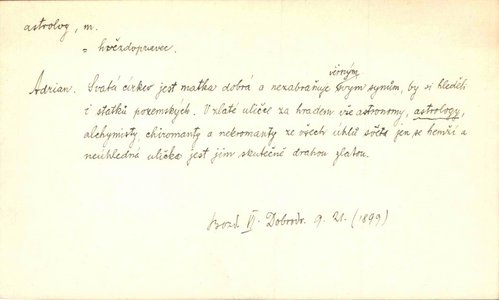 astrolog, m.
= hvězdopravec.
věrným
Adrian. Svatá církev jest matka dobrá a nezabraňuje svým synům, by si hleděli
i statků pozemských. V zlaté uličce za hradem vře astronomy, astrology,
alchymisty chiromanty a nekromanty ze všech úhlů světa jen se hemží a
neúhledná ulička jest jim skutečně drahou zlatou.
Bozd. VI. Dobrodr. 9. 21. (1899)